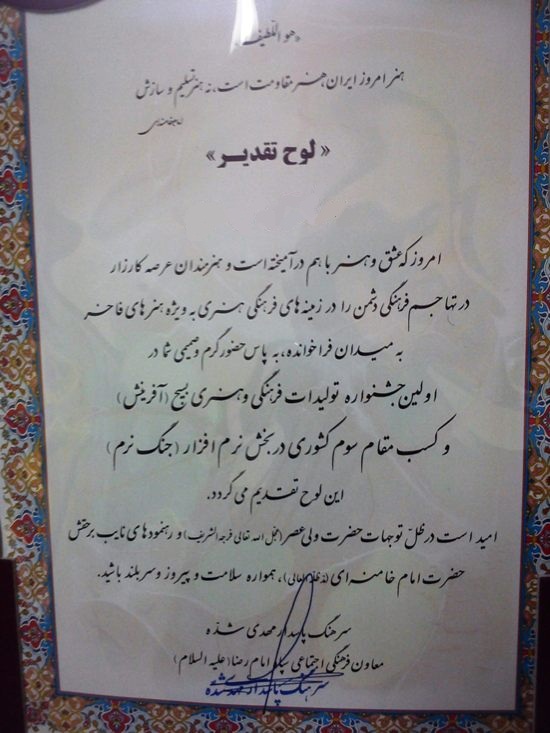 «هو اللطیف»
هنر امروز ایران هنر مقاومت است، نه هنر تسلیم و سازش
امام خامنه‌ای
« لوح تقدیر»
امروز که عشق و هنر با هم درآمیخته است و هنرمندان عرصه کارزار
در تهاجم فرهنگی دشمن را در زمینه های فرهنگی هنری به ویژه هنرهای فاخر
به میدان فراخوانده، به پاس حضور گرم و صمیمی شما در
اولین جشنواره تولیدات فرهنگی و هنری بسیج (آفرینش)
و کسب مقام سوم کشوری در بخش نرم افزار (جنگ نرم)
این لوح تقدیم می گردد.
امید است در ظلّ توجهات حضرت ولی عصر (عجل الله تعالی فرجه الشریف) و رهنمودهای نایب برحقش
حضرت امام خامنه ای (مدظله العالی)، همواره سلامت و پیروز و سربلند باشید.
سرهنگ پاسدار مهدی شدّه
معاون فرهنگی اجتماعی سپاه امام رضا (علیه السلام)
سرهنگ پاسدار مهدی شده